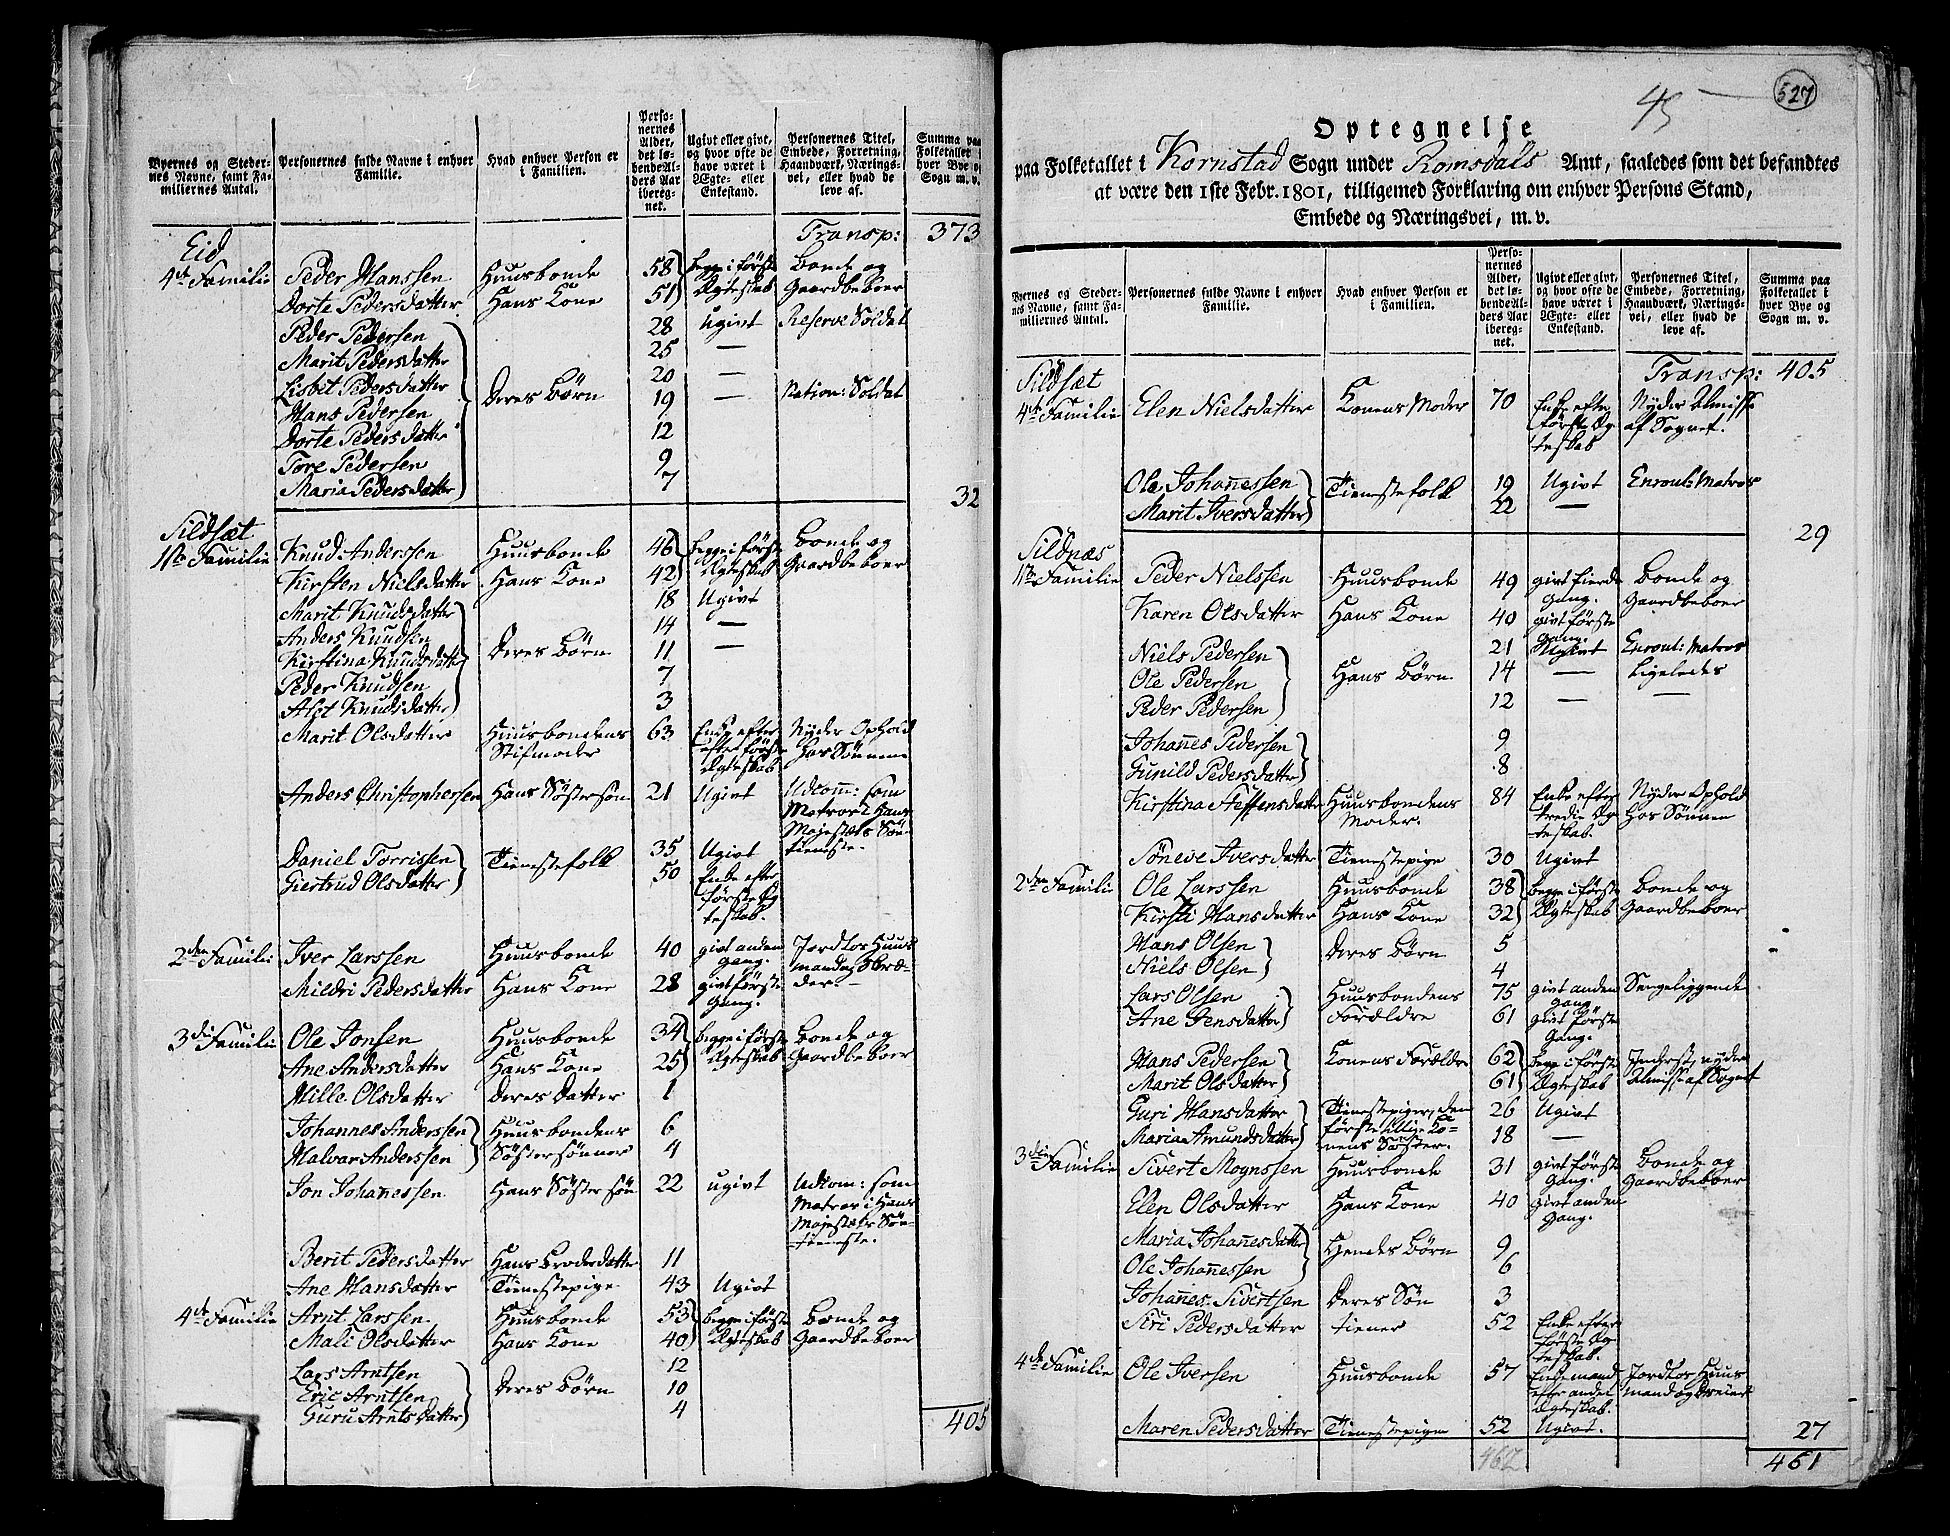 Byernes og Steder-
nes Navne, samt Fa-
miliernes Antal.
Personernes fulde Navne i enhver
Familie.
Hvad enhver Person er
i Familien.
Perso-
nernes
Alder,
det lø-
bende Al-
ders Aar
iberreg-
net.
Ugivt eller givt,
og hvor ofte de
have været i
Ægte- eller
Enkestand.
Personernes Titel,
Embede, Forretning,
Haandværk, Nærings-
vei, eller hvad de
leve af.
Summa paa
Folketallet i
hver Bye og
Sogn m. v.
Transp: 373
Eid
4de Familie Peder Hanssen Huusbonde 58 begge i første Bonde og
Dorte Pedersdatter Hans Kone 51 Ægteskab Gaardbeboer
Peder Pedersen 28 Ugivt Reserve Soldat
Marit Pedersdatter 25 —
Lisbet Pedersdatter 20 —
Hans Pedersen Deres Børn 19 — Nation: Soldat
Dorte Pedersdatter 12
Tore Pedersen 9
Maria Pedersdatter 7
32
Sildsæt
1ste Familie Knud Anderssen Huusbonde 46 begge i første Bonde og
Kirsten Nielsdatter Hans Kone 42 Ægteskab Gaardbeboer
Marit Knudsdatter 18 Ugivt
Anders Knudsen 14 —
Kirstina Knudsdatter Deres Børn 11 —
Peder Knudsen 7
Alet Knudsdatter 3
Marit Olsdatter Huusbondens 63 Enke efter Nyder Ophold
Stifmoder efter første hos Sønnene
Ægteskab
Anders Christophersen Hans Søstersøn 21 Ugivt Udcomm: som
Matros i Hans
Majestæts Søe
tieneste.
Daniel Torrissen Tienestefolk 35 Ugivt
Giertrud Olsdatter 50 Enke efter
første Æg
teskab.
2den Familie Iver Larssen Huusbonde 40 givt anden Jordløs Huus
gang. mand og Skræ-
Mildri Pedersdatter Hans Kone 28 givt første der —
Gang.
3die Familie Ole Jonsen Huusbonde 34 begge i første Bonde og
Ane Andersdatter Hans Kone 25 Ægteskab Gaardbeboer
Mille Olsdatter Deres Datter 1
Johannes Anderssen Huusbondens 6
Halvar Anderssen Søstersønner 4
Jon Johanessen Hans Søstersøn 22 ugivt Udcom: som
Matros i Hans
Majestæts Søe
tieneste.
Berit Pedersdatter Hans Broderdatter 11
Ane Hansdatter Tienestepige 43 Ugivt
4de Familie Arnt Larssen Huusbonde 53 begge i første Bonde og
Mali Olsdatter Hans Kone 40 Ægteskab Gaardbeboer
Lars Arntsen 12
Eric Arntsen Deres Børn 10
Guru Arntsdatter 4
405
45 — 527
Optegnelse
paa Folketallet i Kornstad Sogn under Romsdals Amt, saaledes som det befandtes
at være den 1ste Febr. 1801, tilligemed Forklaring om enhver Persons Stand,
Embede og Næringsvei, m. v.
Byernes og Steder-
nes Navne, samt Fa-
miliernes Antal.
Personernes fulde Navne i enhver
Familie.
Hvad enhver Person er
i Familien.
Perso-
nernes
Alder,
det lø-
bende Al-
ders Aar
iberreg-
net.
Ugivt eller givt,
og hvor ofte de
have været i
Ægte- eller
Enkestand.
Personernes Titel,
Embede, Forretning,
Haandværk, Nærings-
vei, eller hvad de
leve af.
Summa paa
Folketallet i
hver Bye og
Sogn m. v.
Transp: 405
Sildsæt
4de Familie Elen Nielsdatter Konens Moder 70 Enke efter Nyder Almisse
første Æg af Sognet.
teskab
Ole Johanessen Tienestefolk 19 Ugivt Enroul: Matros
Marit Iversdatter 22 —
29
Sildnæs
1ste Familie Peder Nielssen Huusbonde 49 givt fierde Bonde og
gang. Gaardbeboer
Karen Olsdatter Hans Kone 40 givt første
gang.
Niels Pedersen 21 Ugivt Enroul: Matros
Ole Pedersen Hans Børn 14 — Ligeledes
Peder Pedersen 12 — —
Johanes Pedersen 9
Gunild Pedersdatter 8
Kirstina Steffensdatter Huusbondens 84 Enke efter Nyder Ophold
Moder. tredie Æg hos Sønnen
teskab.
Søneve Iversdatter Tienestepige 30 Ugivt
2den Familie Ole Larssen Huusbonde 38 begge i første Bonde og
Kirsti Hansdatter Hans Kone 32 Ægteskab Gaardbeboer
Hans Olsen Deres Børn 5
Niels Olsen 4
Lars Olsen Huusbondens 75 givt anden Sengeliggende
gang
Ane Jensdatter Forældre 61 givt første
Gang.
Hans Pedersen Konens Forældre 62 begge i første Inderst, nyder
Marit Olsdatter 61 Ægteskab Almisse af Sognet
Guri Hansdatter Tienestepiger, den 26 Ugivt
første tillige Ko-
Maria Amundsdatter nens Søster. 18 —
3die Familie Sivert Mognssen Huusbonde 31 givt første Bonde og
Gang. Gaardbeboer
Elen Olsdatter Hans Kone 40 givt anden
Gang.
Maria Johanesdatter Hendes Børn 9
Ole Johanessen 6
Johanes Sivertsen Deres Søn 3
Siri Pedersdatter tiener 52 Enke efter
første Æg
teskab.
4de Familie Ole Iversen Huusbonde 57 Enkemand Jordløs Huus
efter andet mand og Dreier
Ægteskab.
Maren Pedersdatter Tienestepige 52 Ugivt.
27
462 461